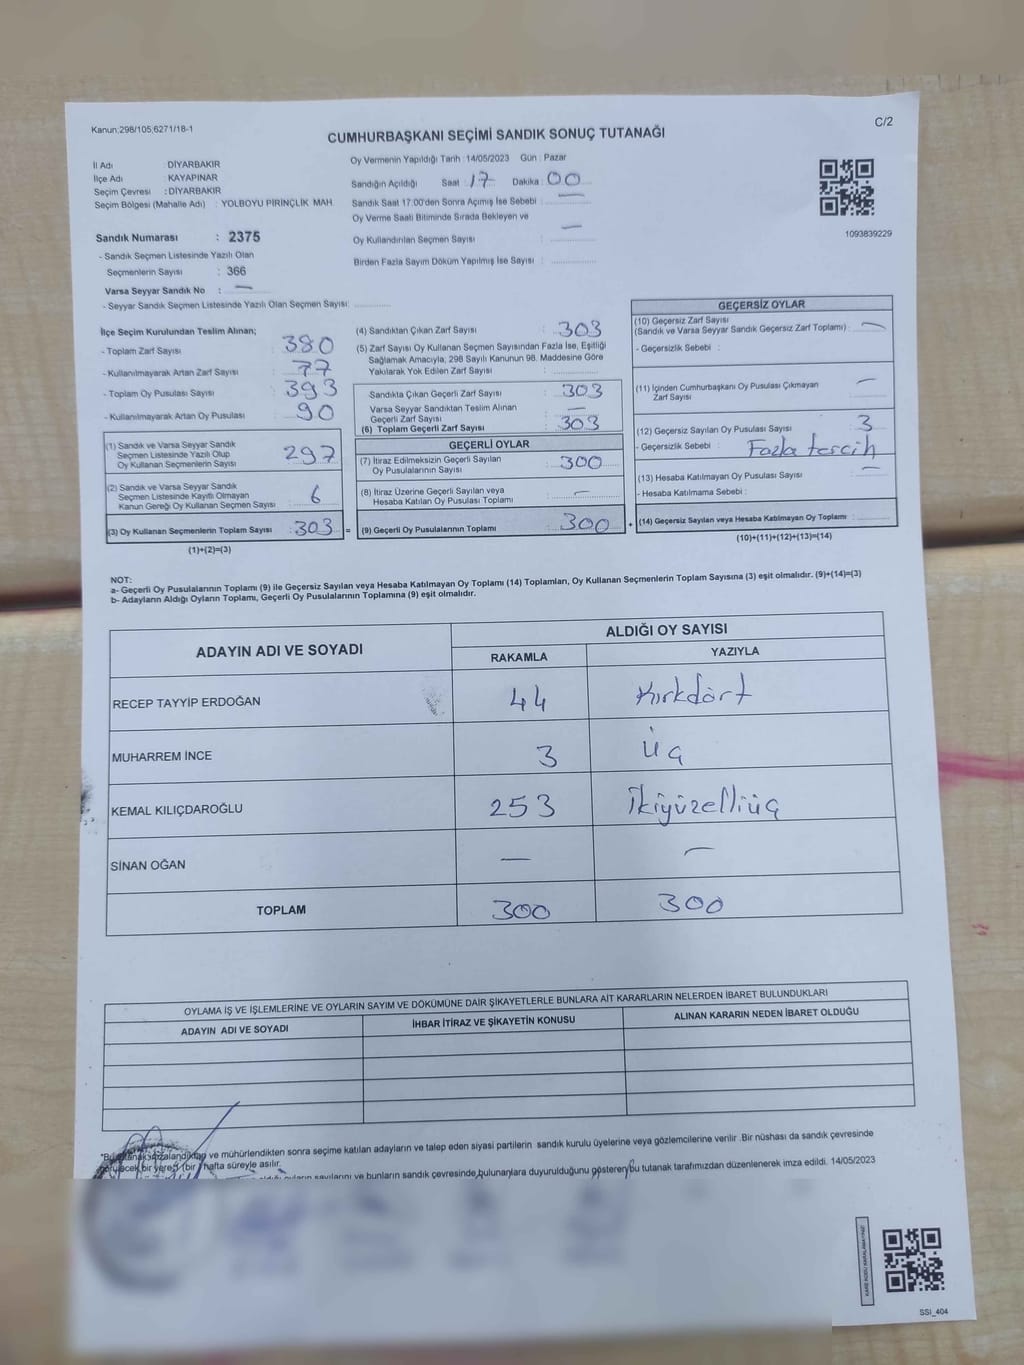 Kanun:298/105;6271/18-1
C/2
CUMHURBAŞKANI SEÇİMİ SANDIK SONUÇ TUTANAĞI
İl Adı : DİYARBAKIR
İlçe Adı : KAYAPINAR
Seçim Çevresi : DİYARBAKIR
Seçim Bölgesi (Mahalle Adı) : YOLBOYU PİRİNÇLİK MAH.
Sandık Numarası : 2375
- Sandık Seçmen Listesinde Yazılı Olan
Seçmenlerin Sayısı : 366
Varsa Seyyar Sandık No : —
- Seyyar Sandık Seçmen Listesinde Yazılı Olan Seçmen Sayısı: ............
Oy Vermenin Yapıldığı Tarih : 14/05/2023 Gün : Pazar
Sandığın Açıldığı Saat : 17 Dakika : 00
Sandık Saat 17.00'den Sonra Açımış İse Sebebi : —
Oy Verme Saati Bitiminde Sırada Bekleyen ve
Oy Kullandırılan Seçmen Sayısı : —
Birden Fazla Sayım Döküm Yapılmış İse Sayısı : ............
1093839229
İlçe Seçim Kurulundan Teslim Alınan;
- Toplam Zarf Sayısı : 380
- Kullanılmayarak Artan Zarf Sayısı : 77
- Toplam Oy Pusulası Sayısı : 393
- Kullanılmayarak Artan Oy Pusulası : 90
(1) Sandık ve Varsa Seyyar Sandık
Seçmen Listesinde Yazılı Olup
Oy Kullanan Seçmenlerin Sayısı : 297
(2) Sandık ve Varsa Seyyar Sandık
Seçmen Listesinde Kayıtlı Olmayan
Kanun Gereği Oy Kullanan Seçmen Sayısı : 6
(3) Oy Kullanan Seçmenlerin Toplam Sayısı : 303 =
(1)+(2)=(3)
(4) Sandıktan Çıkan Zarf Sayısı : 303
(5) Zarf Sayısı Oy Kullanan Seçmen Sayısından Fazla İse, Eşitliği
Sağlamak Amacıyla; 298 Sayılı Kanunun 98. Maddesine Göre
Yakılarak Yok Edilen Zarf Sayısı : ............
Sandıkta Çıkan Geçerli Zarf Sayısı : 303
Varsa Seyyar Sandıktan Teslim Alınan
Geçerli Zarf Sayısı : —
(6) Toplam Geçerli Zarf Sayısı : 303
GEÇERLİ OYLAR
(7) İtiraz Edilmeksizin Geçerli Sayılan
Oy Pusulalarının Sayısı : 300
(8) İtiraz Üzerine Geçerli Sayılan veya
Hesaba Katılan Oy Pusulası Toplamı : —
(9) Geçerli Oy Pusulalarının Toplamı : 300 +
GEÇERSİZ OYLAR
(10) Geçersiz Zarf Sayısı
(Sandık ve Varsa Seyyar Sandık Geçersiz Zarf Toplamı) : —
- Geçersizlik Sebebi :
(11) İçinden Cumhurbaşkanı Oy Pusulası Çıkmayan
Zarf Sayısı : —
(12) Geçersiz Sayılan Oy Pusulası Sayısı : 3
- Geçersizlik Sebebi : Fazla tercih
(13) Hesaba Katılmayan Oy Pusulası Sayısı : —
- Hesaba Katılmama Sebebi :
(14) Geçersiz Sayılan veya Hesaba Katılmayan Oy Toplamı : ............
(10)+(11)+(12)+(13)=(14)
NOT:
a- Geçerli Oy Pusulalarının Toplamı (9) ile Geçersiz Sayılan veya Hesaba Katılmayan Oy Toplamı (14) Toplamları, Oy Kullanan Seçmenlerin Toplam Sayısına (3) eşit olmalıdır. (9)+(14)=(3)
b- Adayların Aldığı Oyların Toplamı, Geçerli Oy Pusulalarının Toplamına (9) eşit olmalıdır.
ADAYIN ADI VE SOYADI
ALDIĞI OY SAYISI
RAKAMLA YAZIYLA
RECEP TAYYİP ERDOĞAN 44 Kırkdört
MUHARREM İNCE 3 üç
KEMAL KILIÇDAROĞLU 253 İkiyüzelliüç
SİNAN OĞAN — —
TOPLAM 300 300
OYLAMA İŞ VE İŞLEMLERİNE VE OYLARIN SAYIM VE DÖKÜMÜNE DAİR ŞİKAYETLERLE BUNLARA AİT KARARLARIN NELERDEN İBARET BULUNDUKLARI
ADAYIN ADI VE SOYADI İHBAR İTİRAZ VE ŞİKAYETİN KONUSU ALINAN KARARIN NEDEN İBARET OLDUĞU
ve mühürlendikten sonra seçime katılan adayların ve talep eden siyasi partilerin sandık kurulu üyelerine veya gözlemcilerine verilir .Bir nüshası da sandık çevresinde
bir yere (bir) hafta süreyle asılır.
sayılarını ve bunların sandık çevresinde bulunanlara duyurulduğunu gösteren bu tutanak tarafımızdan düzenlenerek imza edildi. 14/05/2023
SSI_404